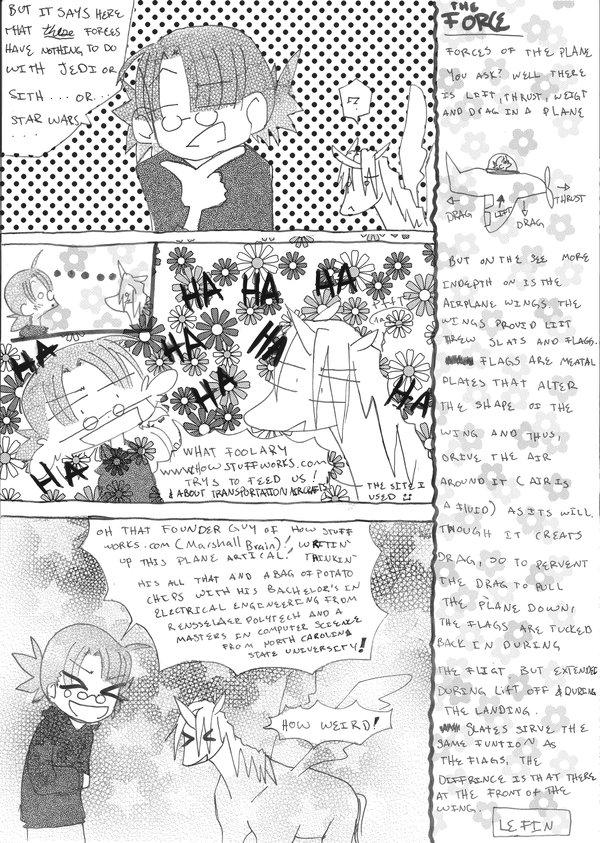 BUT IT SAYS HERE
THAT these FORCES
HAVE NOTHING TO DO
WITH JEDI OR
SITH... OR...
STAR WARS...
....
!?
HA HA HA
HA HA
HA HA
HA
HA
WHAT FOOLARY
WWW.HOWSTUFFWORKS.COM
TRYS TO FEED US!
& ABOUT TRANSPORTATION AIRCRAFTS
THE SITE I
USED
OH THAT FOUNDER GUY OF HOW STUFF
WORKS.COM (MARSHALL BRAIN)! WRITIN'
UP THIS PLANE ARTICAL! THINKIN'
HIS ALL THAT AND A BAG OF POTATO
CHIPS WITH HIS BACHELOR'S IN
ELECTRICAL ENGINEERING FROM
RENSSELAER POLYTECH AND A
MASTERS IN COMPUTER SCIENCE
FROM NORTH CAROLINA
STATE UNIVERSITY!
HOW WEIRD!
THE
FORCE
FORCES OF THE PLANE
YOU ASK? WELL THERE
IS LEIT, THRUST, WEIGT
AND DRAG IN A PLANE
THRUST
DRAG LIFT
DRAG
BUT ON THE SEE MORE
INDEPTH ON IS THE
AIRPLANE WINGS. THE
WINGS PROVID LIIT
THREW SLATS AND FLAGS.
FLAGS ARE MEATAL
PLATES THAT ALTER
THE SHAPE OF THE
WING AND THUS,
DRIVE THE AIR
AROUND IT (AIR IS
A FLUID) AS ITS WILL.
THOUGH IT CREATS
DRAG, SO TO PERVENT
THE DRAG TO PULL
THE PLANE DOWN,
THE FLAGS ARE TUCKED
BACK IN DURING
THE FLIGT BUT EXTENDED
DURING LIFT OFF & DURING
THE LANDING.
SLATES SIRVE THE
SAME FUNTION AS
THE FLAGS, THE
DIFFRINCE IS THAT THERE
AT THE FRONT OF THE
WING.
LEFIN